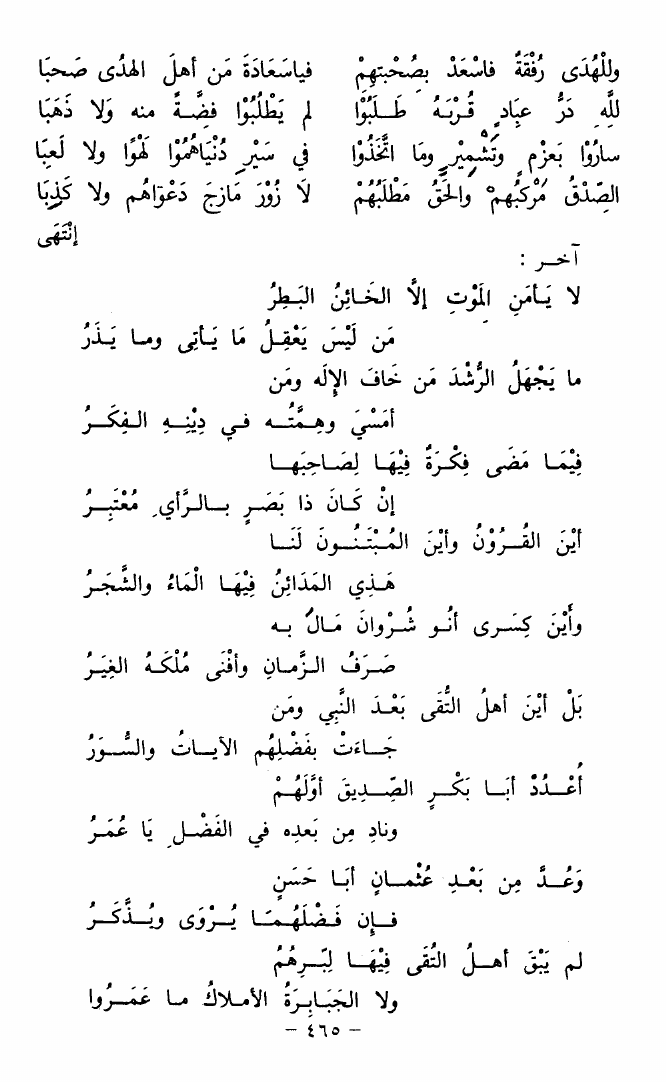 وللْهُدَى رُفْقَةٌ فاسْعَدْ بصُحْبتهِمْ فياسَعَادَةَ مَن أهلَ الهدُى صَحبَا
للَّهِ دَرُّ عِبَادٍ قُربَهُ طَلَبُوْا لم يَطْلُبُوْا فِضَّةً منه وَلا ذَهَبَا
سارُوْا بَعزمٍ وَتَشْمِيْرٍ ومَا اتَّخَذُوْا في سَيْرِ دُنْيَاهُمُوْا لَهْوًا ولا لَعِبَا
الصِّدْقُ مَرْكَبُهم والحَقُّ مَطْلَبُهُمْ لَا زُوْرَ مَازجَ دَعْوَاهُم ولا كَذِبَا
إنْتَهَى
آخر :
لا يَأمَنِ المَوْتِ إلَّا الخَائِنُ البَطِرُ
مَن لَيْسَ يَعْقِلُ مَا يَأتِى وما يَذَرُ
ما يَجْهَلُ الرُّشْدَ مَن خَافَ الإِلَه ومَن
أمْسَيَ وهِمَّتُه في دِيْنِهِ الفِكَرُ
فِيْمَا مَضَى فِكْرَةٌ فِيْهَا لِصَاحِبَها
إنْ كَانَ ذا بَصَرٍ بالرَّأيِ مُعْتَبِرُ
أيْنَ القُرُوْنُ وأيْنَ المُبْتَنُونَ لَنَا
هَذِي المَدَائِنُ فِيْهَا الْمَاءُ والشَّجَرُ
وأَيْنَ كِسَرى أنُو شُرْوانَ مَالَ به
صَرَفُ الزَّمانِ وأفْنَى مُلْكَهُ الغِيَرُ
بَلْ أيْنَ أهلُ التُّقَى بَعْدَ النَّبِي ومَن
جَاءَتْ بفَضْلِهُم الآياتُ والسُّوَرُ
أُعْدُدْ أبَا بَكْرٍ الصِّدِيقَ أوَّلَهُمْ
ونادِ مِن بَعدِه في الفَضْلِ يَا عُمَرُ
وَعُدَّ مِن بَعْدِ عُثْمانٍ أبَا حَسَنٍ
فإن فَضْلَهُمَا يُرْوَى ويُذَّكَرُ
لم يَبْقَ أهلُ التُقَى فِيْهَا لِبّرِهُمُ
ولا الجَبَابِرَةُ الأملاكُ ما عَمَرُوا
– ٤٦٥ –